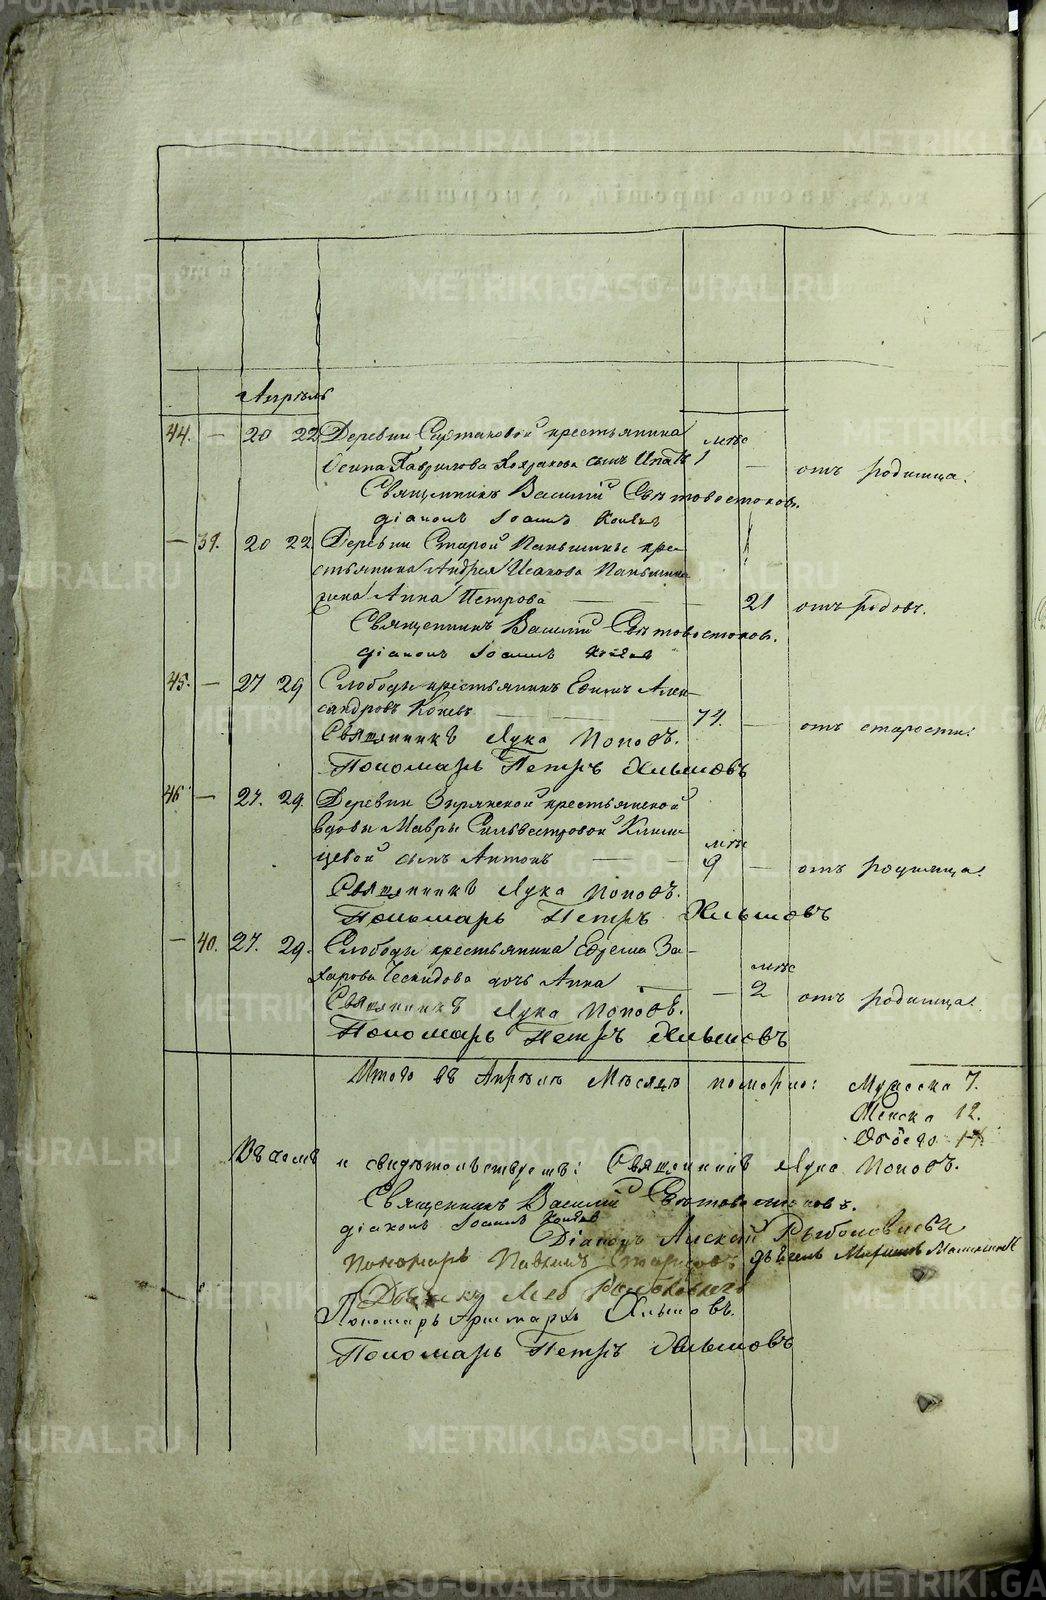 METRIKI.GASO-URAL.RU
Апрѣль
44. — 20 22 Деревни Сартаковой крестьянина мѣс
Осипа Гаврилова сынъ Ипатъ 1 — отъ родимца.
Священникъ Василій Свѣтовостоковъ.
діаконъ Іоаннъ
— 39. 20 22 Деревни Старой Паньшины кре-
стьянина Андрея Исакова Паньшина
жена Анна Петрова — 21 отъ родовъ.
Священникъ Василій Свѣтовостоковъ.
діаконъ Іоаннъ
45. — 27 29 Слободы крестьянинъ Евтихъ Алек-
сандровъ Коневъ — 74. — отъ старости.
Священникъ Лука Поповъ.
Пономарь Петръ Хлыновъ
46 — 27. 29. Деревни Зырянской крестьянской
вдовы Мавры Сильвестровой Клим-
цевой сынъ Антонъ — мѣс 9 — отъ родимца.
Священникъ Лука Поповъ.
Пономарь Петръ Хлыновъ
— 40. 27. 29. Слободы крестьянина Ефрема За-
харова Ческидова дочь Анна — мѣс 2 отъ родимца.
Священникъ Лука Поповъ.
Пономарь Петръ Хлыновъ
Итого въ Апрѣлѣ Мѣсяцѣ померло: Мужеска 7.
Женска 12.
Обоего
Въ чемъ и свидѣтельствуемъ: Священникъ Лука Поповъ.
Священникъ Василій Свѣтовостоковъ.
діаконъ Іоаннъ
Діаконъ Алексій
Пономарь Павелъ
Пономарь Аристархъ Хлыновъ.
Пономарь Петръ Хлыновъ